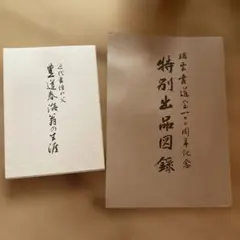 近代書壇の父
豊道春海翁の生涯
瑞雲書道会一〇〇周年記念
特別出品図録